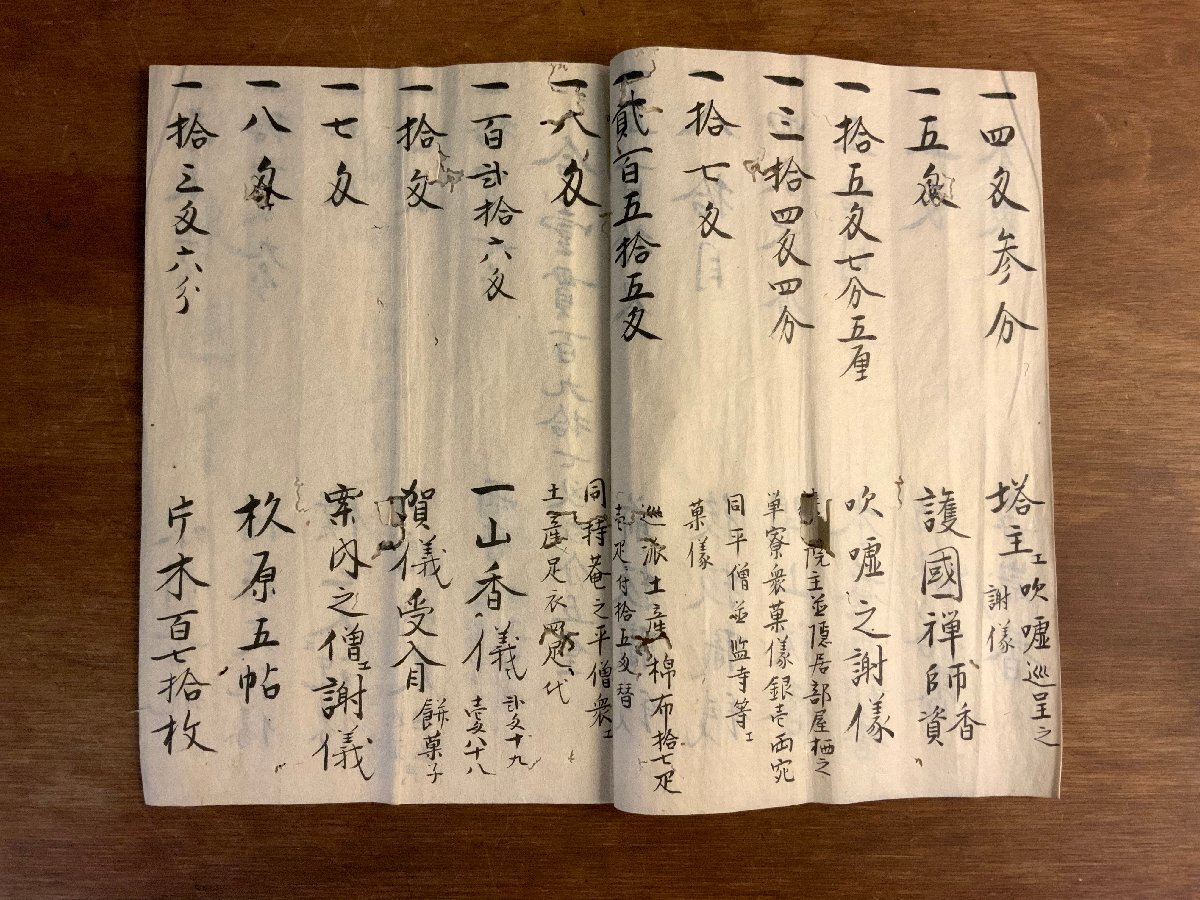 一四匁参分 塔主江吹嘘巡呈之
謝儀
一五匁 護國禅師香資
一拾五匁七分五厘 吹嘘之謝儀
院主並隠居部屋栖之
一三拾四匁四分 単寮衆菓儀銀壱両宛
同平僧並監寺等江
一拾七匁 菓儀
一貳百五拾五匁 巡派土産棉布拾七疋
壱疋ニ付拾五匁替
同持菴之平僧衆江
一八匁 土産足衣四足代
一百弐拾六匁 一山香儀 弐匁十九
壱匁八十八
一拾匁 賀儀受入月 餅菓子
一七匁 案内之僧江謝儀
一八匁 杦原五帖
一拾三匁六分 片木百七拾枚